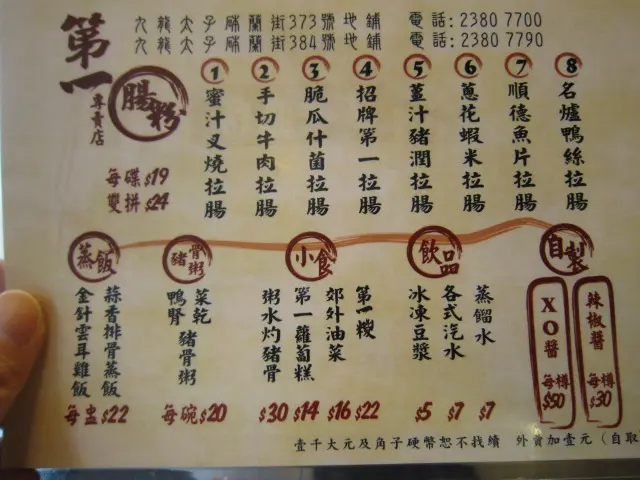 第一
專賣店
九龍太子砵蘭街373號地鋪 電話:2380 7700
九龍太子砵蘭街384號地鋪 電話:2380 7790
腸粉
每碟$19
雙拼$24
1 蜜汁叉燒拉腸
2 手切牛肉拉腸
3 脆瓜什菌拉腸
4 招牌第一拉腸
5 薑汁豬潤拉腸
6 蔥花蝦米拉腸
7 順德魚片拉腸
8 名爐鴨絲拉腸
蒸飯
蒜香排骨蒸飯
金針雲耳雞飯
每盅$22
豬骨粥
菜乾豬骨粥
鴨腎
每碗$20
小食
粥水灼豬骨 $30
第一蘿蔔糕 $14
郊外油菜 $16
第一糉 $22
飲品
冰凍豆漿 $5
各式汽水 $7
蒸餾水 $7
自製
XO醬
每樽
$50
辣椒醬
每樽
$30
壹千大元及角子硬幣恕不找續 外賣加壹元(自取